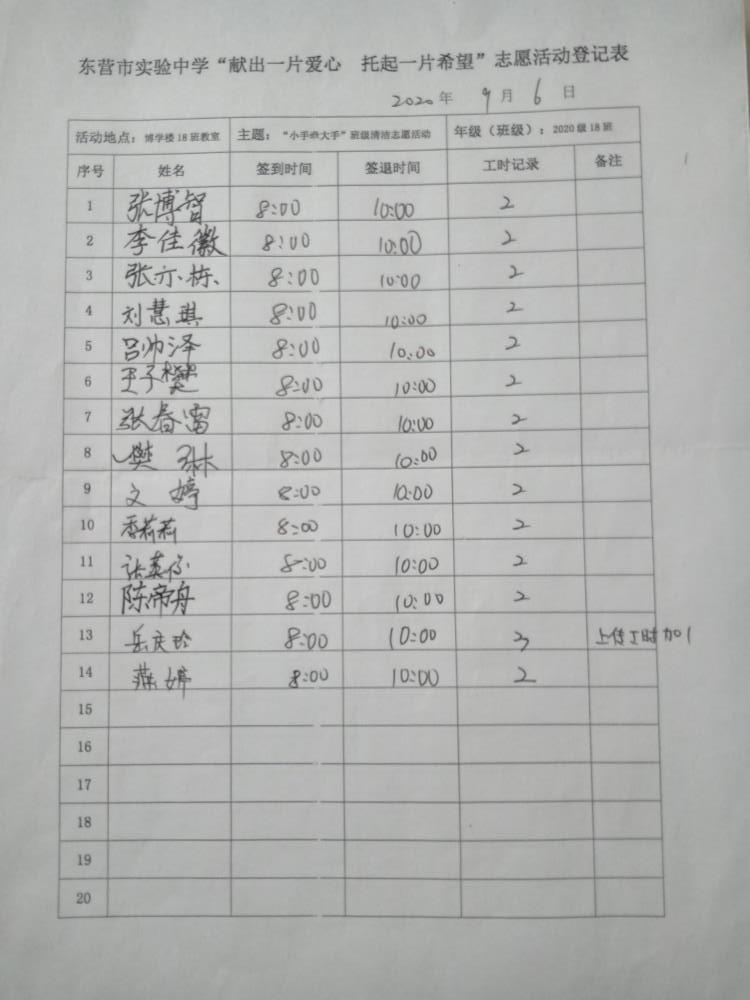 东营市实验中学“献出一片爱心 托起一片希望”志愿活动登记表
2020年 9月 6日
活动地点：博学楼18班教室 主题：“小手牵大手”班级清洁志愿活动 年级（班级）：2020级18班
序号 姓名 签到时间 签退时间 工时记录 备注
1 张博智 8:00 10:00 2
2 李佳徽 8:00 10:00 2
3 张亦栋 8:00 10:00 2
4 刘慧琪 8:00 10:00 2
5 吕帅泽 8:00 10:00 2
6 王子樊 8:00 10:00 2
7 张春雷 8:00 10:00 2
8 樊琳 8:00 10:00 2
9 文婷 8:00 10:00 2
10 季莉莉 8:00 10:00 2
11 8:00 10:00 2
12 陈帝舟 8:00 10:00 2
13 岳庆玲 8:00 10:00 3 上传工时加1
14 燕婷 8:00 10:00 2
15
16
17
18
19
20